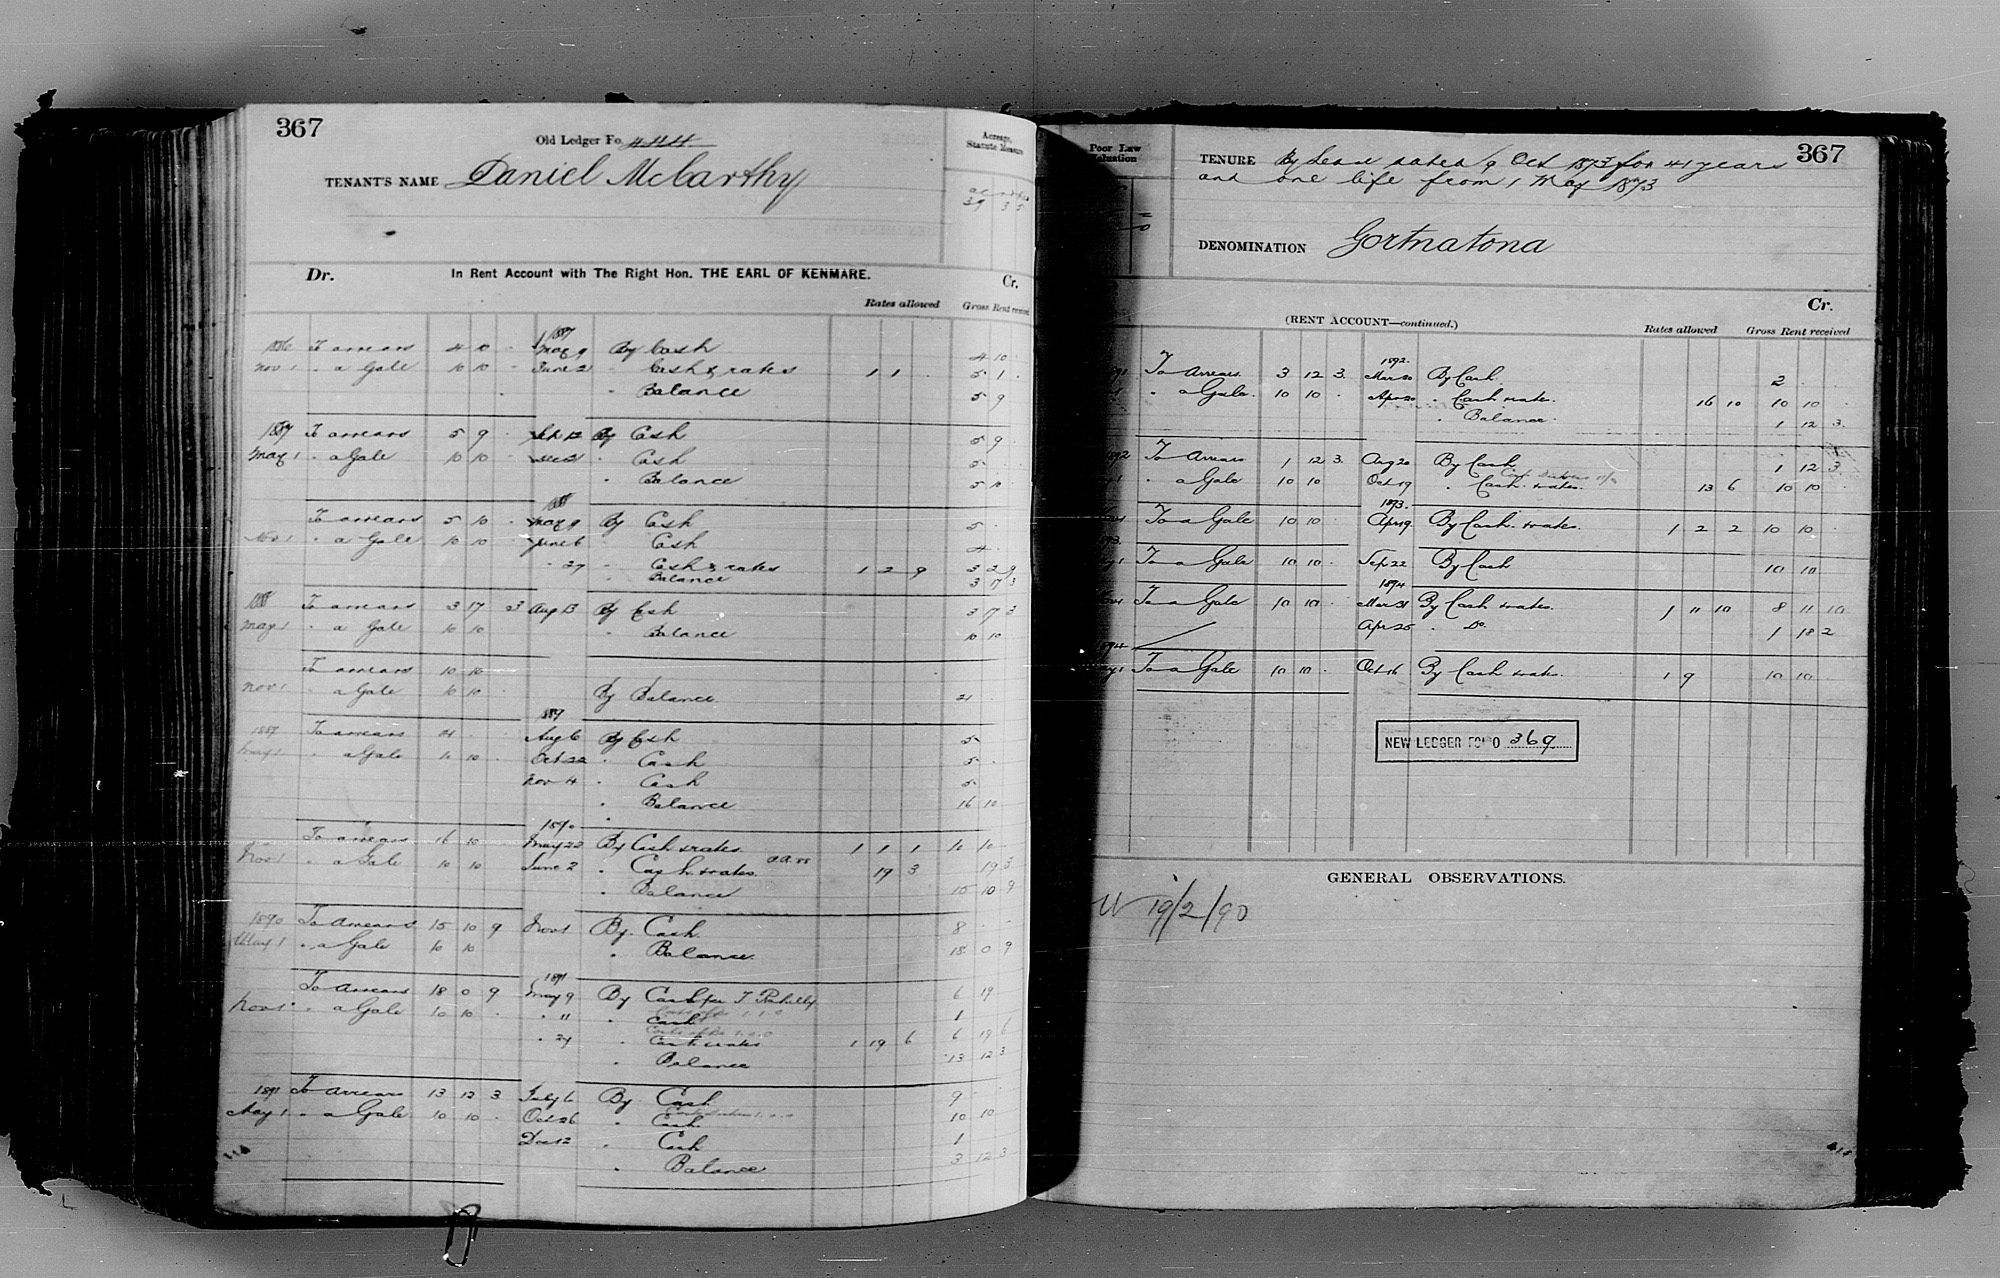 367
Old Ledger Fo.
Acreage, Statute Measure
TENANT'S NAME Daniel McCarthy
39 3 5
Dr. In Rent Account with The Right Hon. THE EARL OF KENMARE. Cr.
Rates allowed Gross Rent received
1887
1886 To arrears 4 10 · May 9 By Cash 4 10 ·
Nov 1 " a Gale 10 10 · June 2 " Cash & rates 1 1 · 5 1 ·
" Balance 5 9
1887 To arrears 5 9 · Sep 12 By Cash 5 9 ·
May 1 " a Gale 10 10 · Dec 21 " Cash 5 ·
" Balance 5 10
1888
To arrears 5 10 · May 9 By Cash 5 ·
Nov 1 " a Gale 10 10 · June 6 " Cash 4 ·
" 27 " Cash & rates 1 2 9 3 2 9
" Balance 3 17 3
1888 To arrears 3 17 3 Aug 13 By Cash 3 17 3
May 1 " a Gale 10 10 " Balance 10 10
To arrears 10 10
Nov 1 " a Gale 10 10 · By Balance 21
1889
1889 To arrears 21 · Aug 6 By Cash 5 ·
May 1 " a Gale 10 10 · Oct 22 " Cash 5 ·
Nov 4 " Cash 5
" Balance 16 10
1890
To arrears 16 10 May 22 By Cash & rates 1 1 1 10 10
Nov 1 " a Gale 10 10 June 2 " Cash & rates 19 3 19 3
" Balance 15 10 9
1890 To Arrears 15 10 9 Nov 1 By Cash 8 ·
May 1 " a Gale 10 10 " Balance 18 0 9
1891
To Arrears 18 0 9 May 9 By Cash per T Rahilly 6 19
Nov 1 " a Gale 10 10 · " 11 " Cash 1
" 27 " Cash & rates 1 19 6 6 18 6
" Balance 13 12 3
1891 To Arrears 13 12 3 July 6 By Cash 9
May 1 " a Gale 10 10 · Oct 26 " Cash 10 10
Dec 12 " Cash 1
" Balance 3 12 3
Poor Law Valuation
TENURE By Lease dated 9 Oct 1873 for 41 years 367
and one life from 1 May 1873
DENOMINATION Gortnatona
Cr.
(RENT ACCOUNT—continued.) Rates allowed Gross Rent received
1892.
To Arrears 3 12 3. Mar 20 By Cash 2 ·
" a Gale. 10 10 · Apr 20 " Cash & rates. 16 10 10 10
" Balance. 1 12 3.
1892 To Arrears 1 12 3. Aug 20 By Cash 1 12 3
" a Gale 10 10 Oct 19 " Cash & rates. 13 6 10 10
1893.
To a Gale 10 10 · Apr 19 By Cash & rates. 1 2 2 10 10
To a Gale 10 10 · Sep 22 By Cash 10 10
1894
To a Gale 10 10 · Mar 31 By Cash & rates. 1 11 10 8 11 10
Apr 25 " Do. 1 18 2
1894
To a Gale 10 10 · Oct 16 By Cash & rates. 1 9 10 10
NEW LEDGER FOLIO 369
GENERAL OBSERVATIONS.
19/2/90